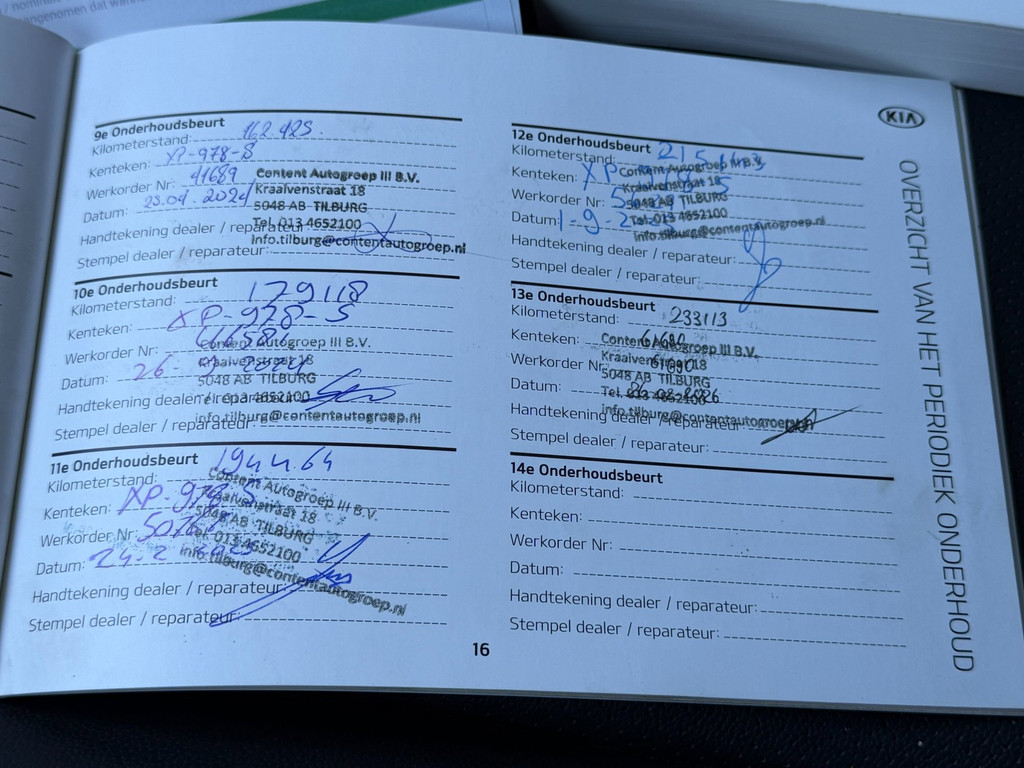 KIA
OVERZICHT VAN HET PERIODIEK ONDERHOUD
9e Onderhoudsbeurt
Kilometerstand: 162.425
Kenteken: XP-978-S
Werkorder Nr: 41689
Datum: 23.01.2024
Handtekening dealer / reparateur:
Stempel dealer / reparateur:
Content Autogroep III B.V.
Kraaivenstraat 18
5048 AB TILBURG
Tel. 013 4652100
info.tilburg@contentautogroep.nl
10e Onderhoudsbeurt
Kilometerstand: 179118
Kenteken: XP-978-S
Werkorder Nr:
Datum: 26 2024
Handtekening dealer / reparateur:
Stempel dealer / reparateur:
Content Autogroep III B.V.
Kraaivenstraat 18
5048 AB TILBURG
Tel. 013 4652100
info.tilburg@contentautogroep.nl
11e Onderhoudsbeurt
Kilometerstand: 194464
Kenteken: XP-978-S
Werkorder Nr:
Datum: 24-2
Handtekening dealer / reparateur:
Stempel dealer / reparateur:
Content Autogroep III B.V.
Kraaivenstraat 18
5048 AB TILBURG
Tel. 013 4652100
info.tilburg@contentautogroep.nl
12e Onderhoudsbeurt
Kilometerstand: 215
Kenteken: XP
Werkorder Nr:
Datum: 1-9-2
Handtekening dealer / reparateur:
Stempel dealer / reparateur:
Content Autogroep III B.V.
Kraaivenstraat 18
5048 AB TILBURG
Tel. 013 4652100
info.tilburg@contentautogroep.nl
13e Onderhoudsbeurt
Kilometerstand: 233113
Kenteken:
Werkorder Nr:
Datum: 2026
Handtekening dealer / reparateur:
Stempel dealer / reparateur:
Content Autogroep III B.V.
Kraaivenstraat 18
5048 AB TILBURG
Tel. 013 4652100
info.tilburg@contentautogroep.nl
14e Onderhoudsbeurt
Kilometerstand:
Kenteken:
Werkorder Nr:
Datum:
Handtekening dealer / reparateur:
Stempel dealer / reparateur:
16